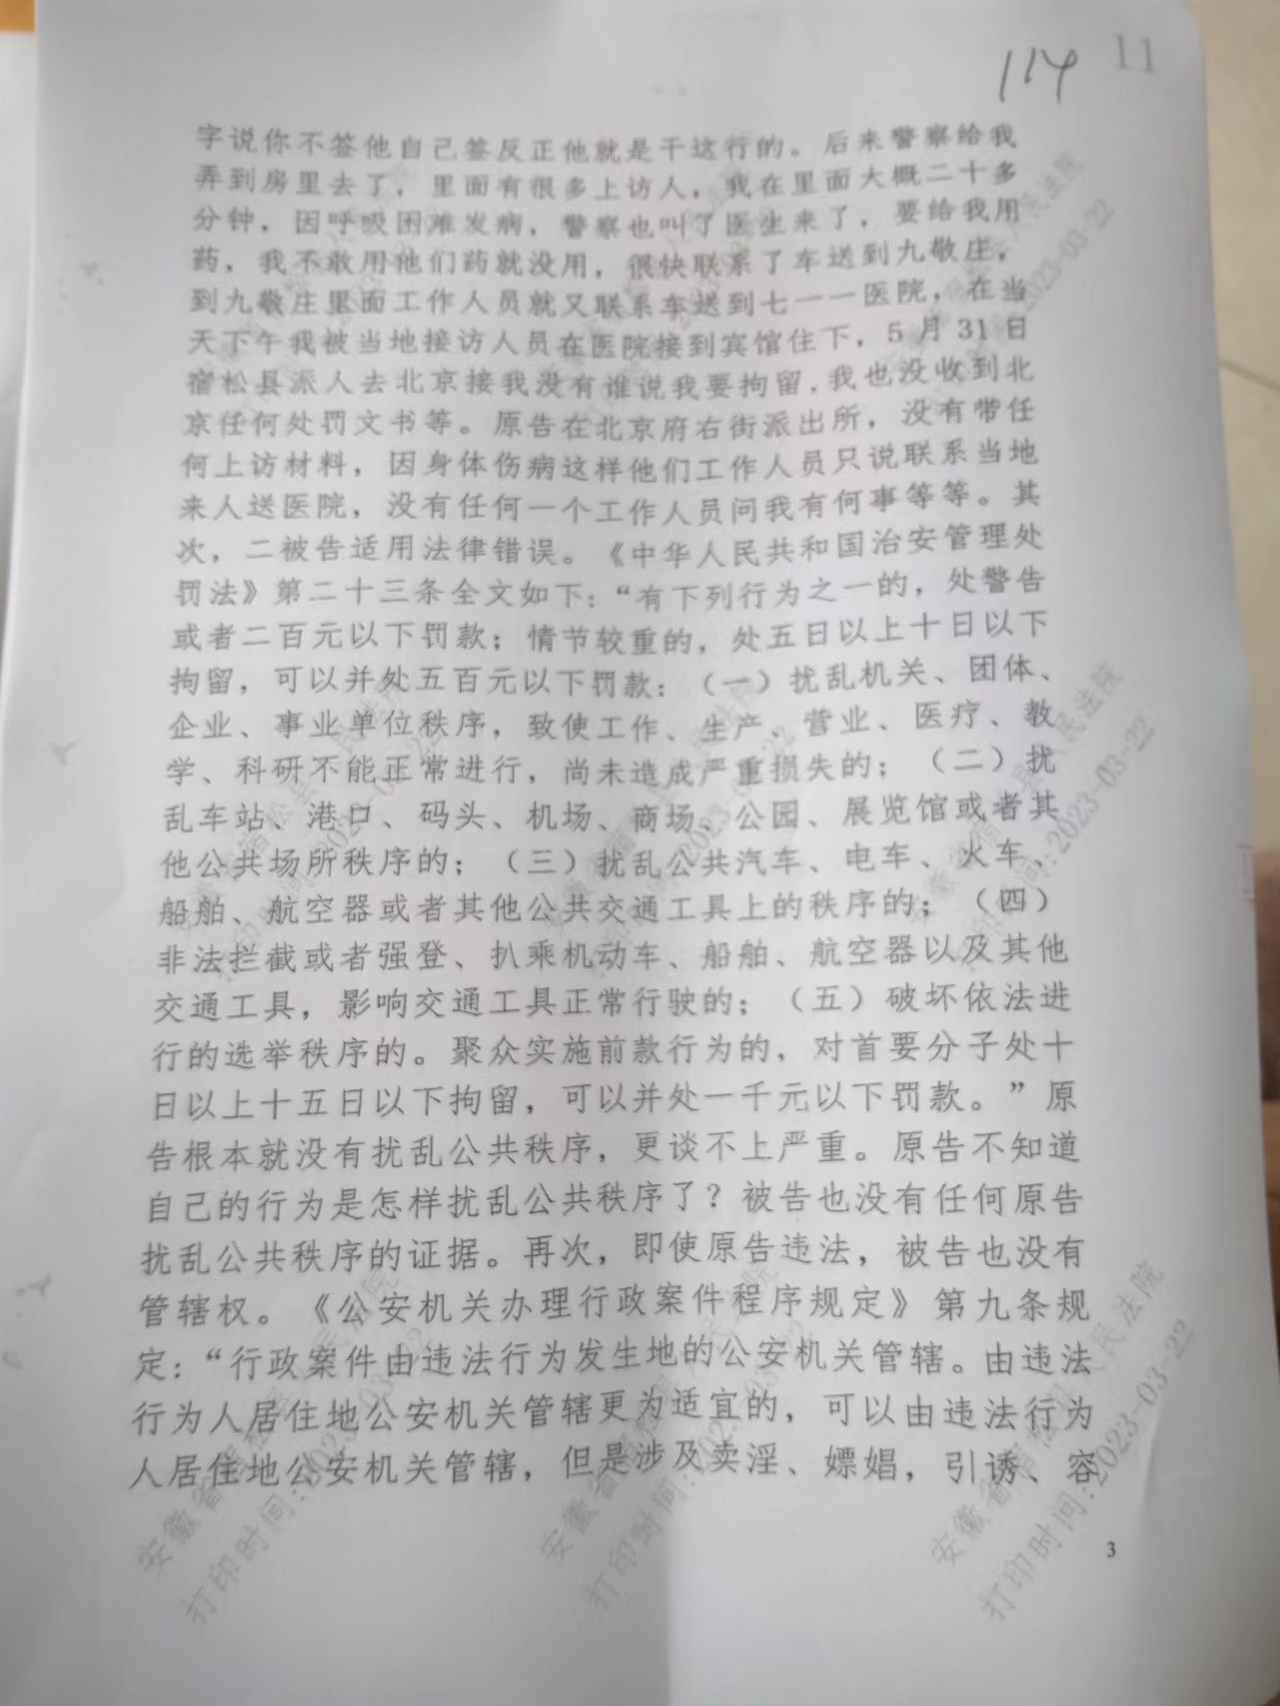 114 11
字说你不签他自己签反正他就是干这行的。后来警察给我
弄到房里去了，里面有很多上访人，我在里面大概二十多
分钟，因呼吸困难发病，警察也叫了医生来了，要给我用
药，我不敢用他们药就没用，很快联系了车送到九敬庄，
到九敬庄里面工作人员就又联系车送到七一一医院，在当
天下午我被当地接访人员在医院接到宾馆住下，5月31日
宿松县派人去北京接我没有谁说我要拘留，我也没收到北
京任何处罚文书等。原告在北京府右街派出所，没有带任
何上访材料，因身体伤病这样他们工作人员只说联系当地
来人送医院，没有任何一个工作人员问我有何事等等。其
次，二被告适用法律错误。《中华人民共和国治安管理处
罚法》第二十三条全文如下：“有下列行为之一的，处警告
或者二百元以下罚款；情节较重的，处五日以上十日以下
拘留，可以并处五百元以下罚款：（一）扰乱机关、团体、
企业、事业单位秩序，致使工作、生产、营业、医疗、教
学、科研不能正常进行，尚未造成严重损失的；（二）扰
乱车站、港口、码头、机场、商场、公园、展览馆或者其
他公共场所秩序的；（三）扰乱公共汽车、电车、火车、
船舶、航空器或者其他公共交通工具上的秩序的；（四）
非法拦截或者强登、扒乘机动车、船舶、航空器以及其他
交通工具，影响交通工具正常行驶的；（五）破坏依法进
行的选举秩序的。聚众实施前款行为的，对首要分子处十
日以上十五日以下拘留，可以并处一千元以下罚款。”原
告根本就没有扰乱公共秩序，更谈不上严重。原告不知道
自己的行为是怎样扰乱公共秩序了？被告也没有任何原告
扰乱公共秩序的证据。再次，即使原告违法，被告也没有
管辖权。《公安机关办理行政案件程序规定》第九条规
定：“行政案件由违法行为发生地的公安机关管辖。由违法
行为人居住地公安机关管辖更为适宜的，可以由违法行为
人居住地公安机关管辖，但是涉及卖淫、嫖娼，引诱、容
安徽省宿松县人民法院
打印时间:2023-03-22
3